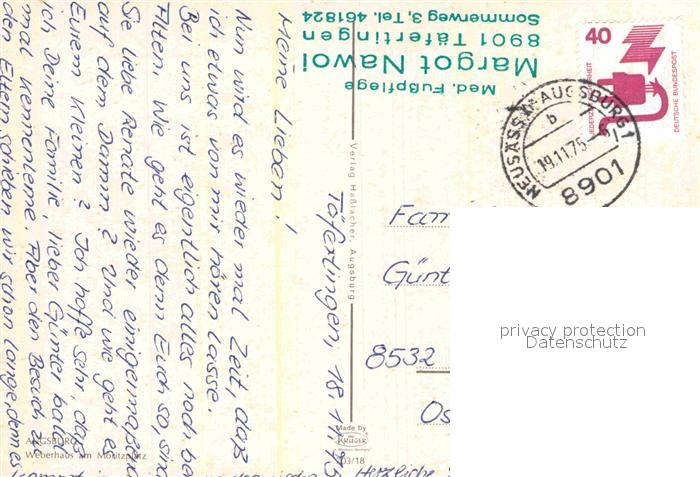 Med. Fußpflege
Margot Nawoi
8901 Täfertingen
Sommerweg 3, Tel. 461824
Täfertingen, 18.11.75
Meine Lieben!
Nun wird es wieder mal Zeit, daß
ich etwas von mir hören lasse.
Bei uns ist eigentlich alles noch be
Alten. Wie geht es denn Euch so, sind
Sie liebe Renate wieder einigermaßen
auf dem Damm? Und wie geht es
Eurem Kleinen? Ich hoffe sehr, das
ich Deine Familie, lieber Günter bald
mal kennenlerne. Aber den Besuch z
den Eltern schieben wir schon lange, dem es
Herzliche
40
JEDERZEIT SICHERHEIT
DEUTSCHE BUNDESPOST
NEUSÄSS AUGSBURG 1
b
19.11.75
8901
Fam
Günt
8532
Verlag Haßlacher, Augsburg
Made by
KRÜGER
AUGSBURG
Weberhaus am Moritzplatz
privacy protection
Datenschutz